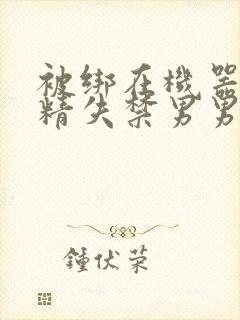 被绑在機器
精失禁男男
鍾伏荣